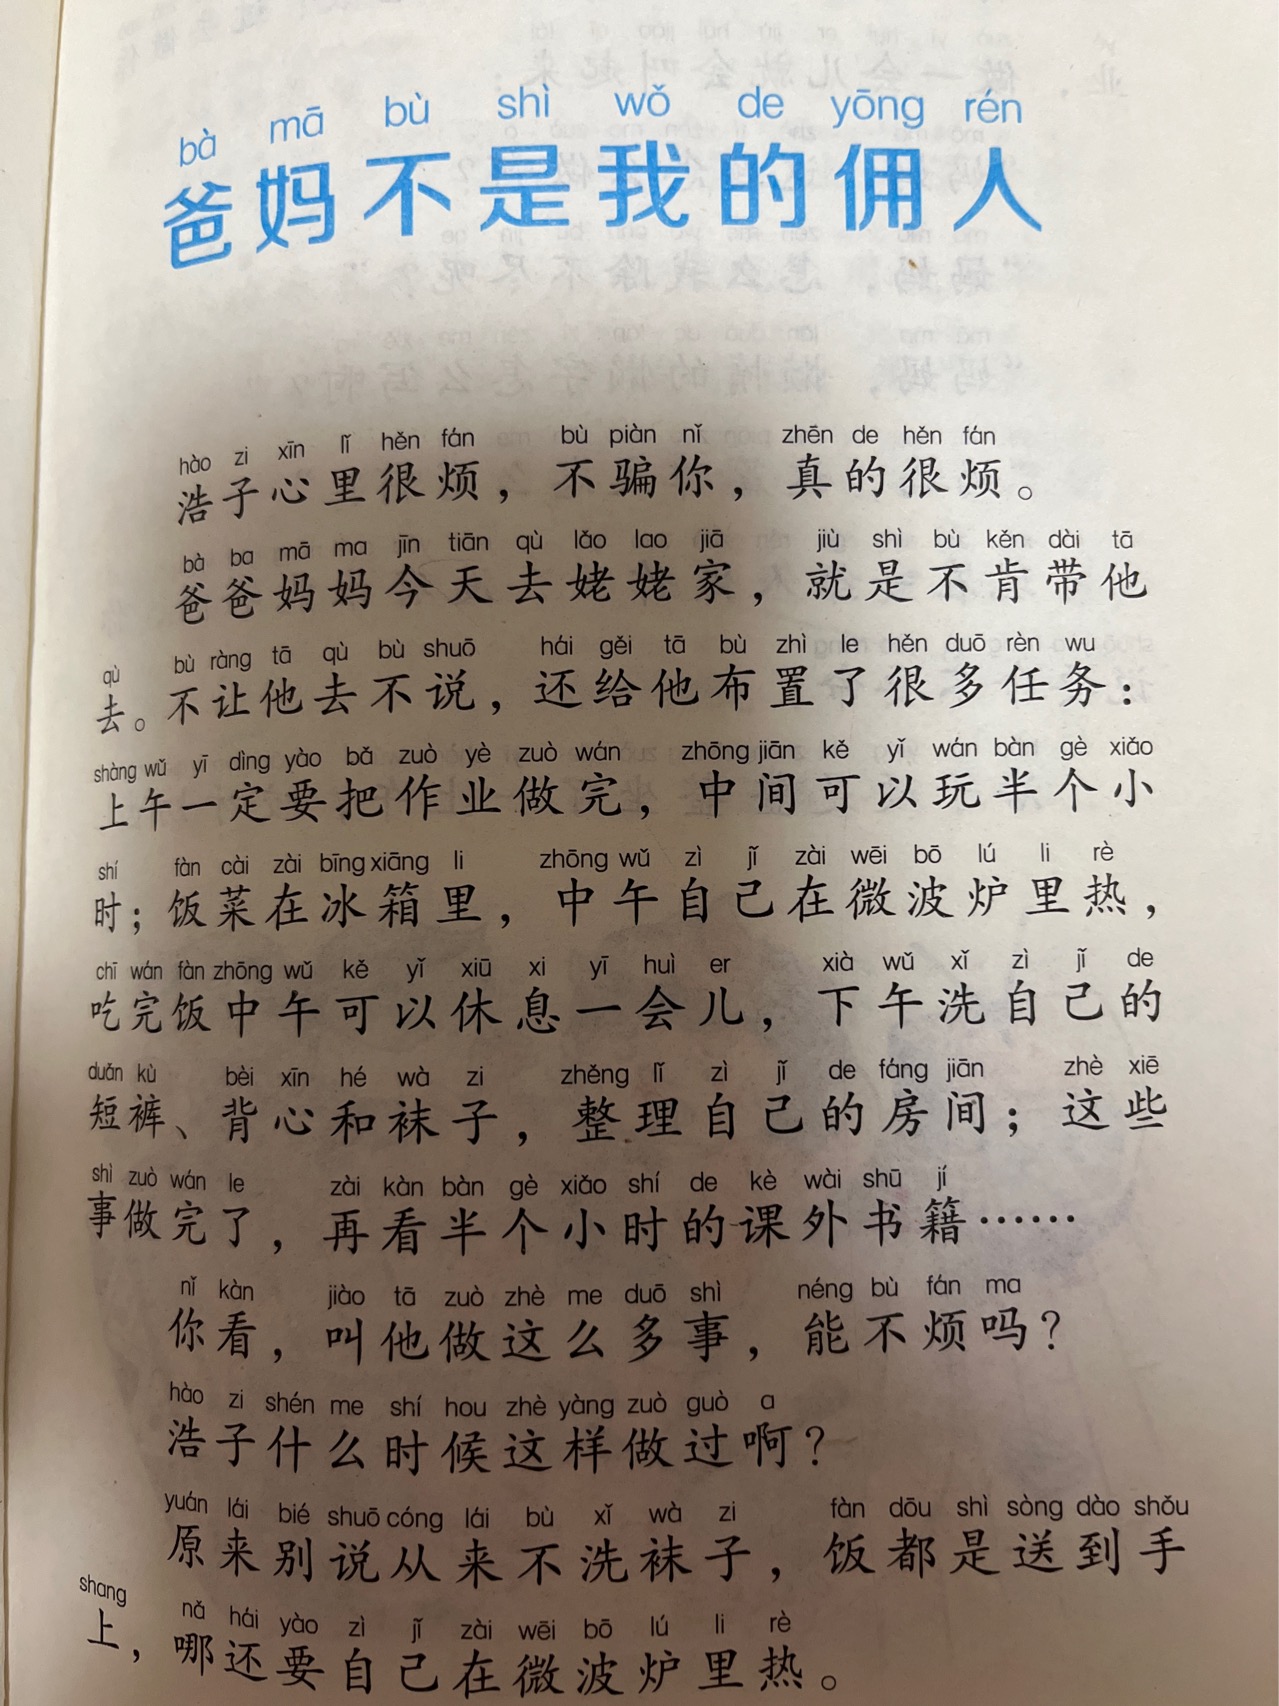 bà mā bù shì wǒ de yōng rén
爸妈不是我的佣人
hào zi xīn lǐ hěn fán bù piàn nǐ zhēn de hěn fán
浩子心里很烦，不骗你，真的很烦。
bà ba mā ma jīn tiān qù lǎo lao jiā jiù shì bù kěn dài tā
爸爸妈妈今天去姥姥家，就是不肯带他
qù bù ràng tā qù bù shuō hái gěi tā bù zhì le hěn duō rèn wu
去。不让他去不说，还给他布置了很多任务：
shàng wǔ yī dìng yào bǎ zuò yè zuò wán zhōng jiān kě yǐ wán bàn gè xiǎo
上午一定要把作业做完，中间可以玩半个小
shí fàn cài zài bīng xiāng li zhōng wǔ zì jǐ zài wēi bō lú li rè
时；饭菜在冰箱里，中午自己在微波炉里热，
chī wán fàn zhōng wǔ kě yǐ xiū xi yī huì er xià wǔ xǐ zì jǐ de
吃完饭中午可以休息一会儿，下午洗自己的
duǎn kù bèi xīn hé wà zi zhěng lǐ zì jǐ de fáng jiān zhè xiē
短裤、背心和袜子，整理自己的房间；这些
shì zuò wán le zài kàn bàn gè xiǎo shí de kè wài shū jí
事做完了，再看半个小时的课外书籍……
nǐ kàn jiào tā zuò zhè me duō shì néng bù fán ma
你看，叫他做这么多事，能不烦吗？
hào zi shén me shí hou zhè yàng zuò guò a
浩子什么时候这样做过啊？
yuán lái bié shuō cóng lái bù xǐ wà zi fàn dōu shì sòng dào shǒu
原来别说从来不洗袜子，饭都是送到手
shang nǎ hái yào zì jǐ zài wēi bō lú li rè
上，哪还要自己在微波炉里热。